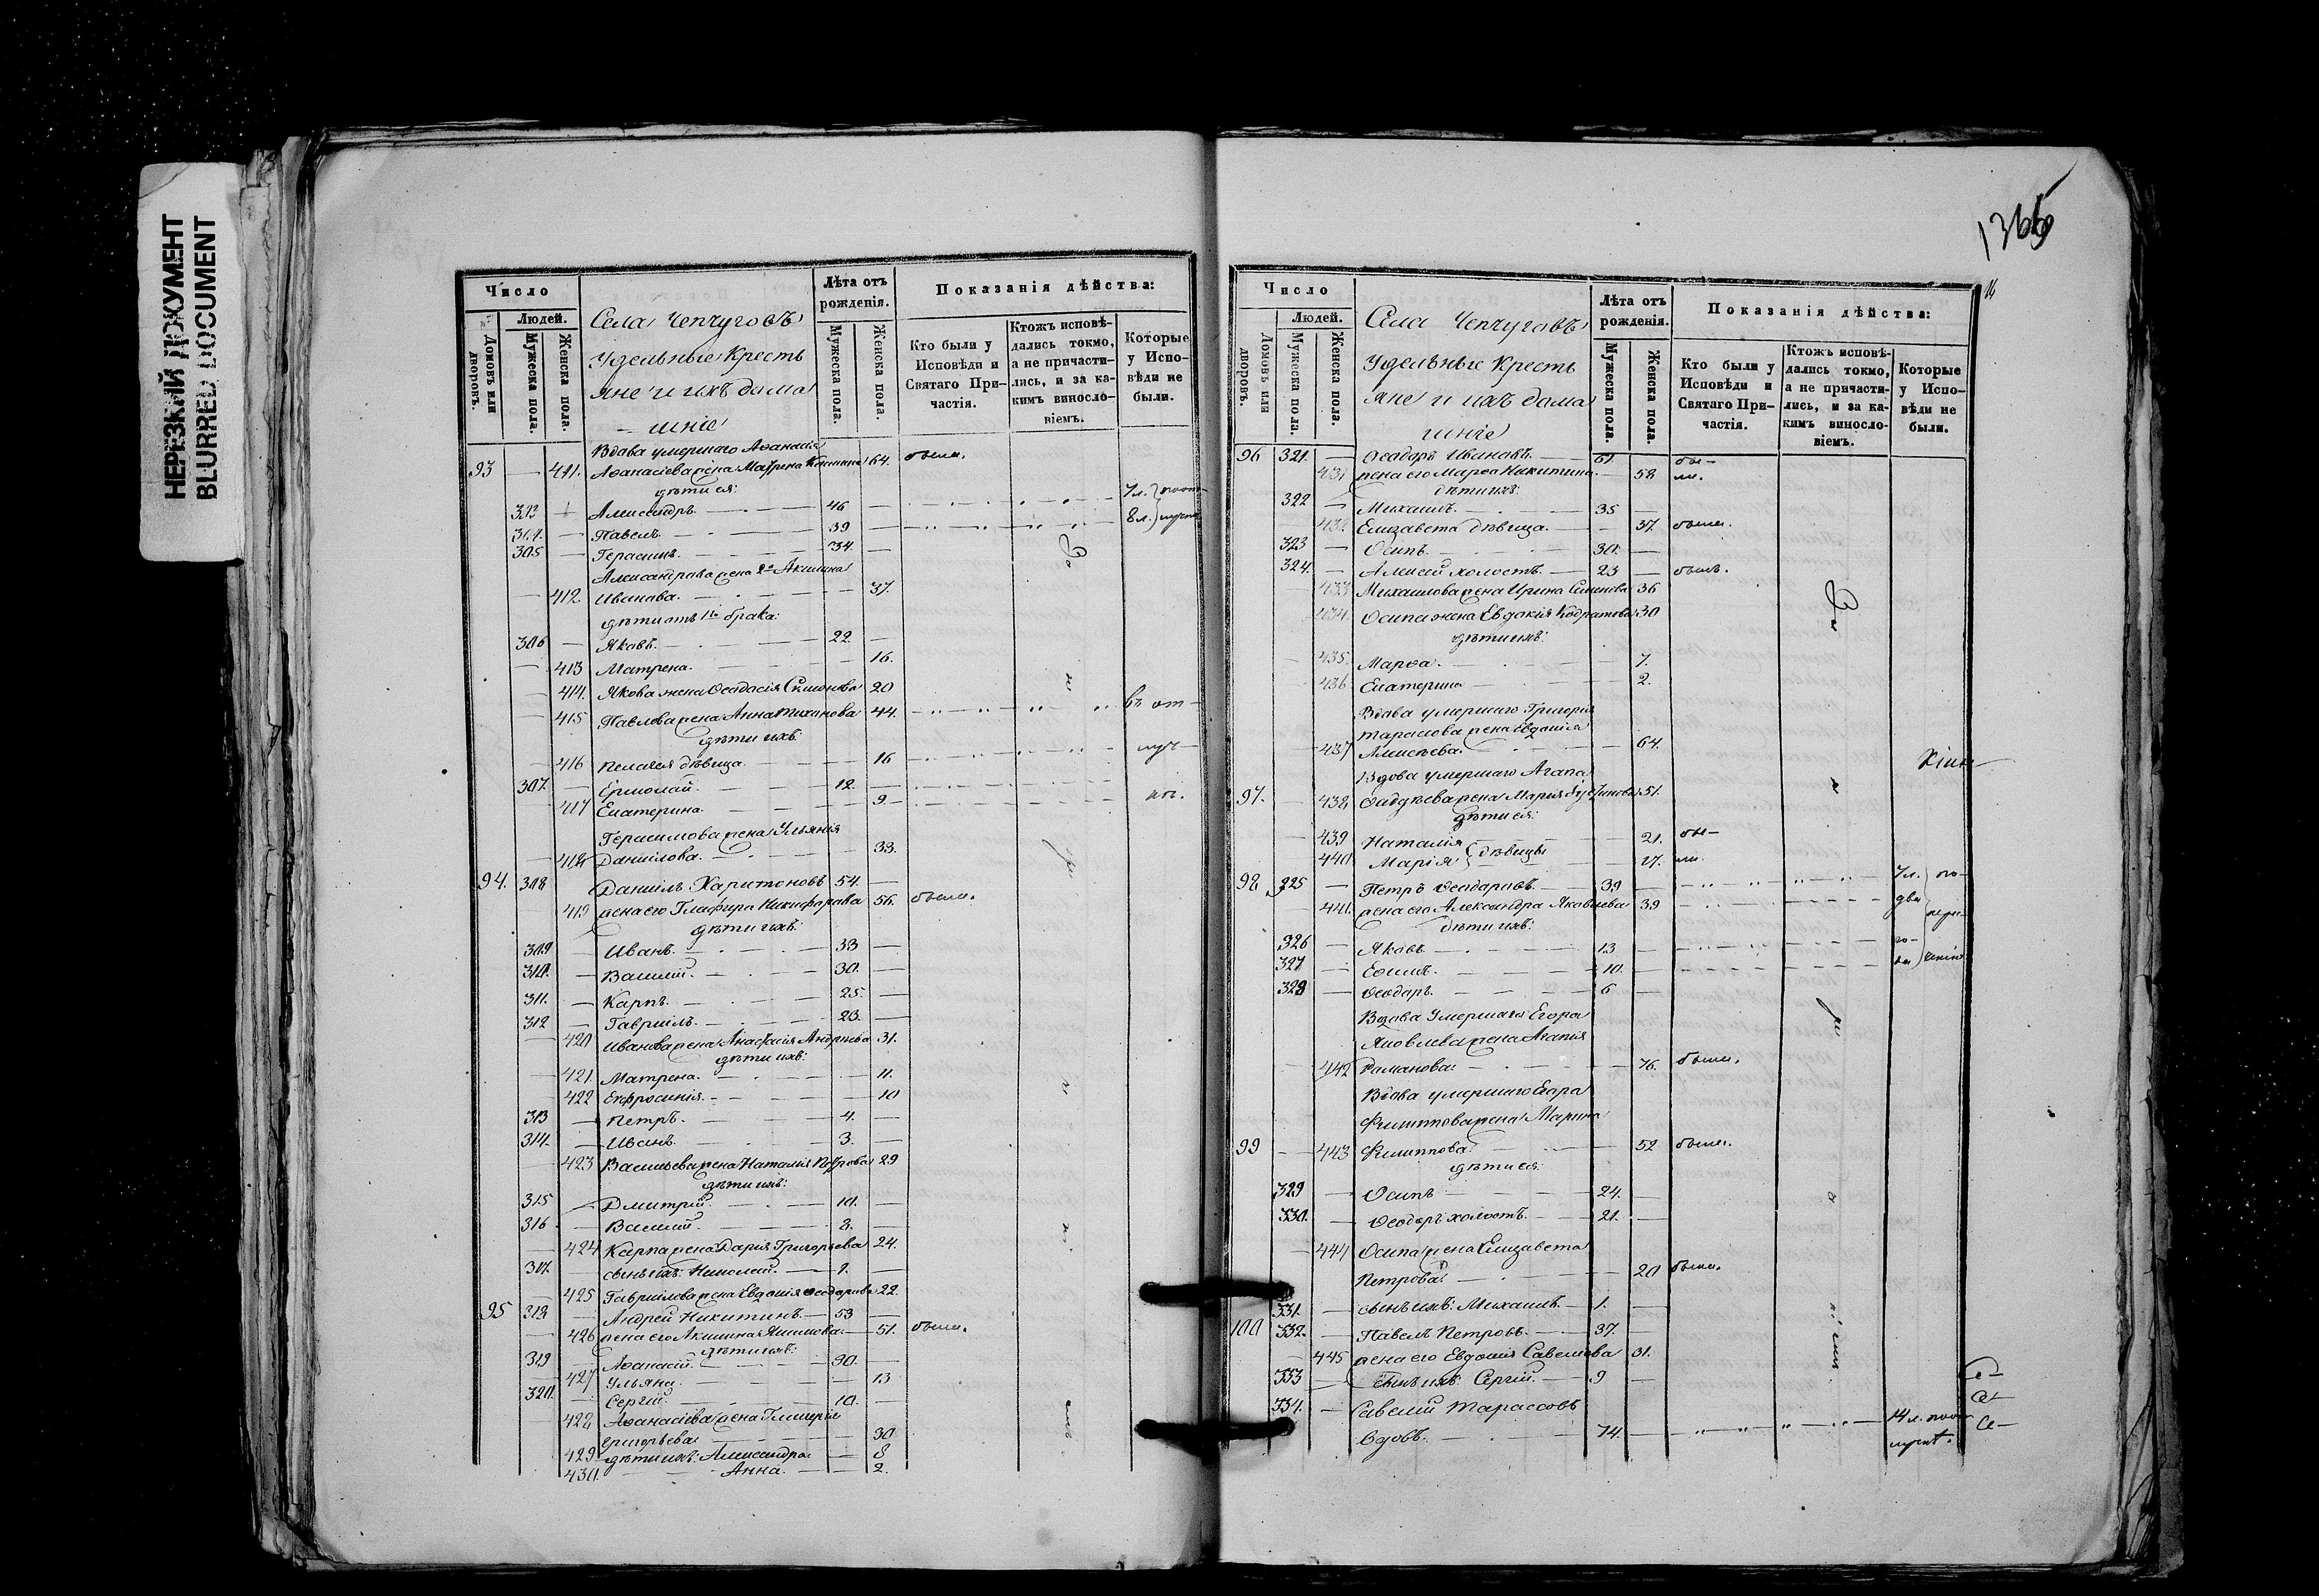 НЕРЕЗКИЙ ДОКУМЕНТ
BLURRED DOCUMENT
Число
Людей.
Домовъ или дворовъ.
Мужеска пола.
Женска пола.
Села Чепчуговъ
Удѣльные Кресть
яне и ихъ дома
шніе
Лѣта отъ рожденія.
Мужеска пола.
Женска пола.
Показанія дѣйства:
Кто были у Исповѣди и Святаго Причастія.
Ктожъ исповѣдались токмо, а не причастились, и за какимъ винословіемъ.
Которые у Исповѣди не были.
Вдова умершаго Аѳанасія
93 — 411. Аѳанасіева жена Матрена 64. были.
дѣти ея:
Александръ. 46 —
304. — Павелъ. 39 —
305 — Герасимъ. 34. —
Александрова жена 2я Акилина
— 412. Иванова. 37.
дѣти отъ 1го брака:
306 — Яковъ. 22. —
— 413 Матрена. 16.
— 414. Якова жена Ѳеодосія Симонова 20
— 415 Павлова жена Анна Тихонова 44.
дѣти ихъ:
— 416 Пелагея дѣвица. 16
307. — Ермолай. 12. —
417 Екатерина. 9.
Герасимова жена Ульянія
— 418 Даниилова. 33.
94. 308 Даніилъ Харитоновъ 54. —
419 жена его Глафира Никифорова 56. были.
дѣти ихъ:
309 — Иванъ. 33 —
310. — Василій. 30. —
311. — Карпъ. 25. —
312 — Гавріилъ. 23. —
— 420 Иванова жена Анастасія Андреева 31.
дѣти ихъ:
— 421. Матрена. 11.
422 Евфросинія. 10
313 — Петръ. 4. —
314. — Иванъ. 3. —
— 423 Васильева жена Наталія Петрова 29
дѣти ихъ:
315 — Дмитрій. 10. —
316 — Василій. 8. —
— 424 Карпа жена Дарія Григорьева 24.
317. сынъ ихъ: Николай. 1. —
— 425 Гавріилова жена Евдокія Ѳеодорова 22.
95 318. — Андрей Никитинъ. 53 —
— 426 жена его Акилина Якимова. 51. были.
дѣти ихъ:
319 Аѳанасій. 30. —
— 427 Ульяна. 13
320. — Сергій. 10. —
428 Аѳанасіева жена Гликерія
Григорьева 30
429 дѣти ихъ: Александра. 8
430. Анна. 2.
1366
Число
Людей.
Домовъ или дворовъ.
Мужеска пола.
Женска пола.
Села Чепчуговъ
Удѣльные Кресть
яне и ихъ дома
шніе
Лѣта отъ рожденія.
Мужеска пола.
Женска пола.
Показанія дѣйства:
Кто были у Исповѣди и Святаго Причастія.
Ктожъ исповѣдались токмо, а не причастились, и за какимъ винословіемъ.
Которые у Исповѣди не были.
96 321. — Ѳеодоръ Ивановъ. 61
431 жена его Марѳа Никитина. — 58 бы-ли.
дѣти ихъ:
322 — Михаилъ. 35 —
432. Елизавета дѣвица. — 37. были.
323 — Осипъ. 30. —
324. — Алексей холостъ. 23 — былъ.
433 Михаилова жена Ирина Симонова 36
434. Осипа жена Евдокія Кодратова 30
дѣти ихъ:
435. Марѳа. 7.
436 Екатерина 2.
Вдова умершаго Григорія
Тарасова жена Евдокія
437 Алексеева. 64.
Вдова умершаго Агапа
97. 438 Ѳаддеева жена Марія 51.
дѣти ея:
439 Наталія 21. бы-
440 Марія } дѣвицы 17. ли.
98 325 — Петръ Ѳеодоровъ. 39 —
441. жена его Александра Яковлева 39
дѣти ихъ:
326 — Яковъ. 13 —
327 — Еѳимъ. 10. —
328 — Ѳеодоръ. 6 —
Вдова умершаго Егора
Яковлева жена Агапія
442 Романова. 76. были.
Вдова умершаго Егора
Филиппова жена Марина
99 443 Филиппова. 52 были.
дѣти ея:
329 — Осипъ 24. —
330. — Ѳеодоръ холостъ. 21. —
— 444 Осипа жена Елизавета
Петрова. 20 были.
331. — сынъ ихъ: Михаилъ. 1. —
100 332. — Павелъ Петровъ. 37. —
— 445 жена его Евдокія Савельева 31.
333 — Сынъ ихъ: Сергій. 9 —
334. — Савелій Тарассовъ
Вдовъ. 74. —